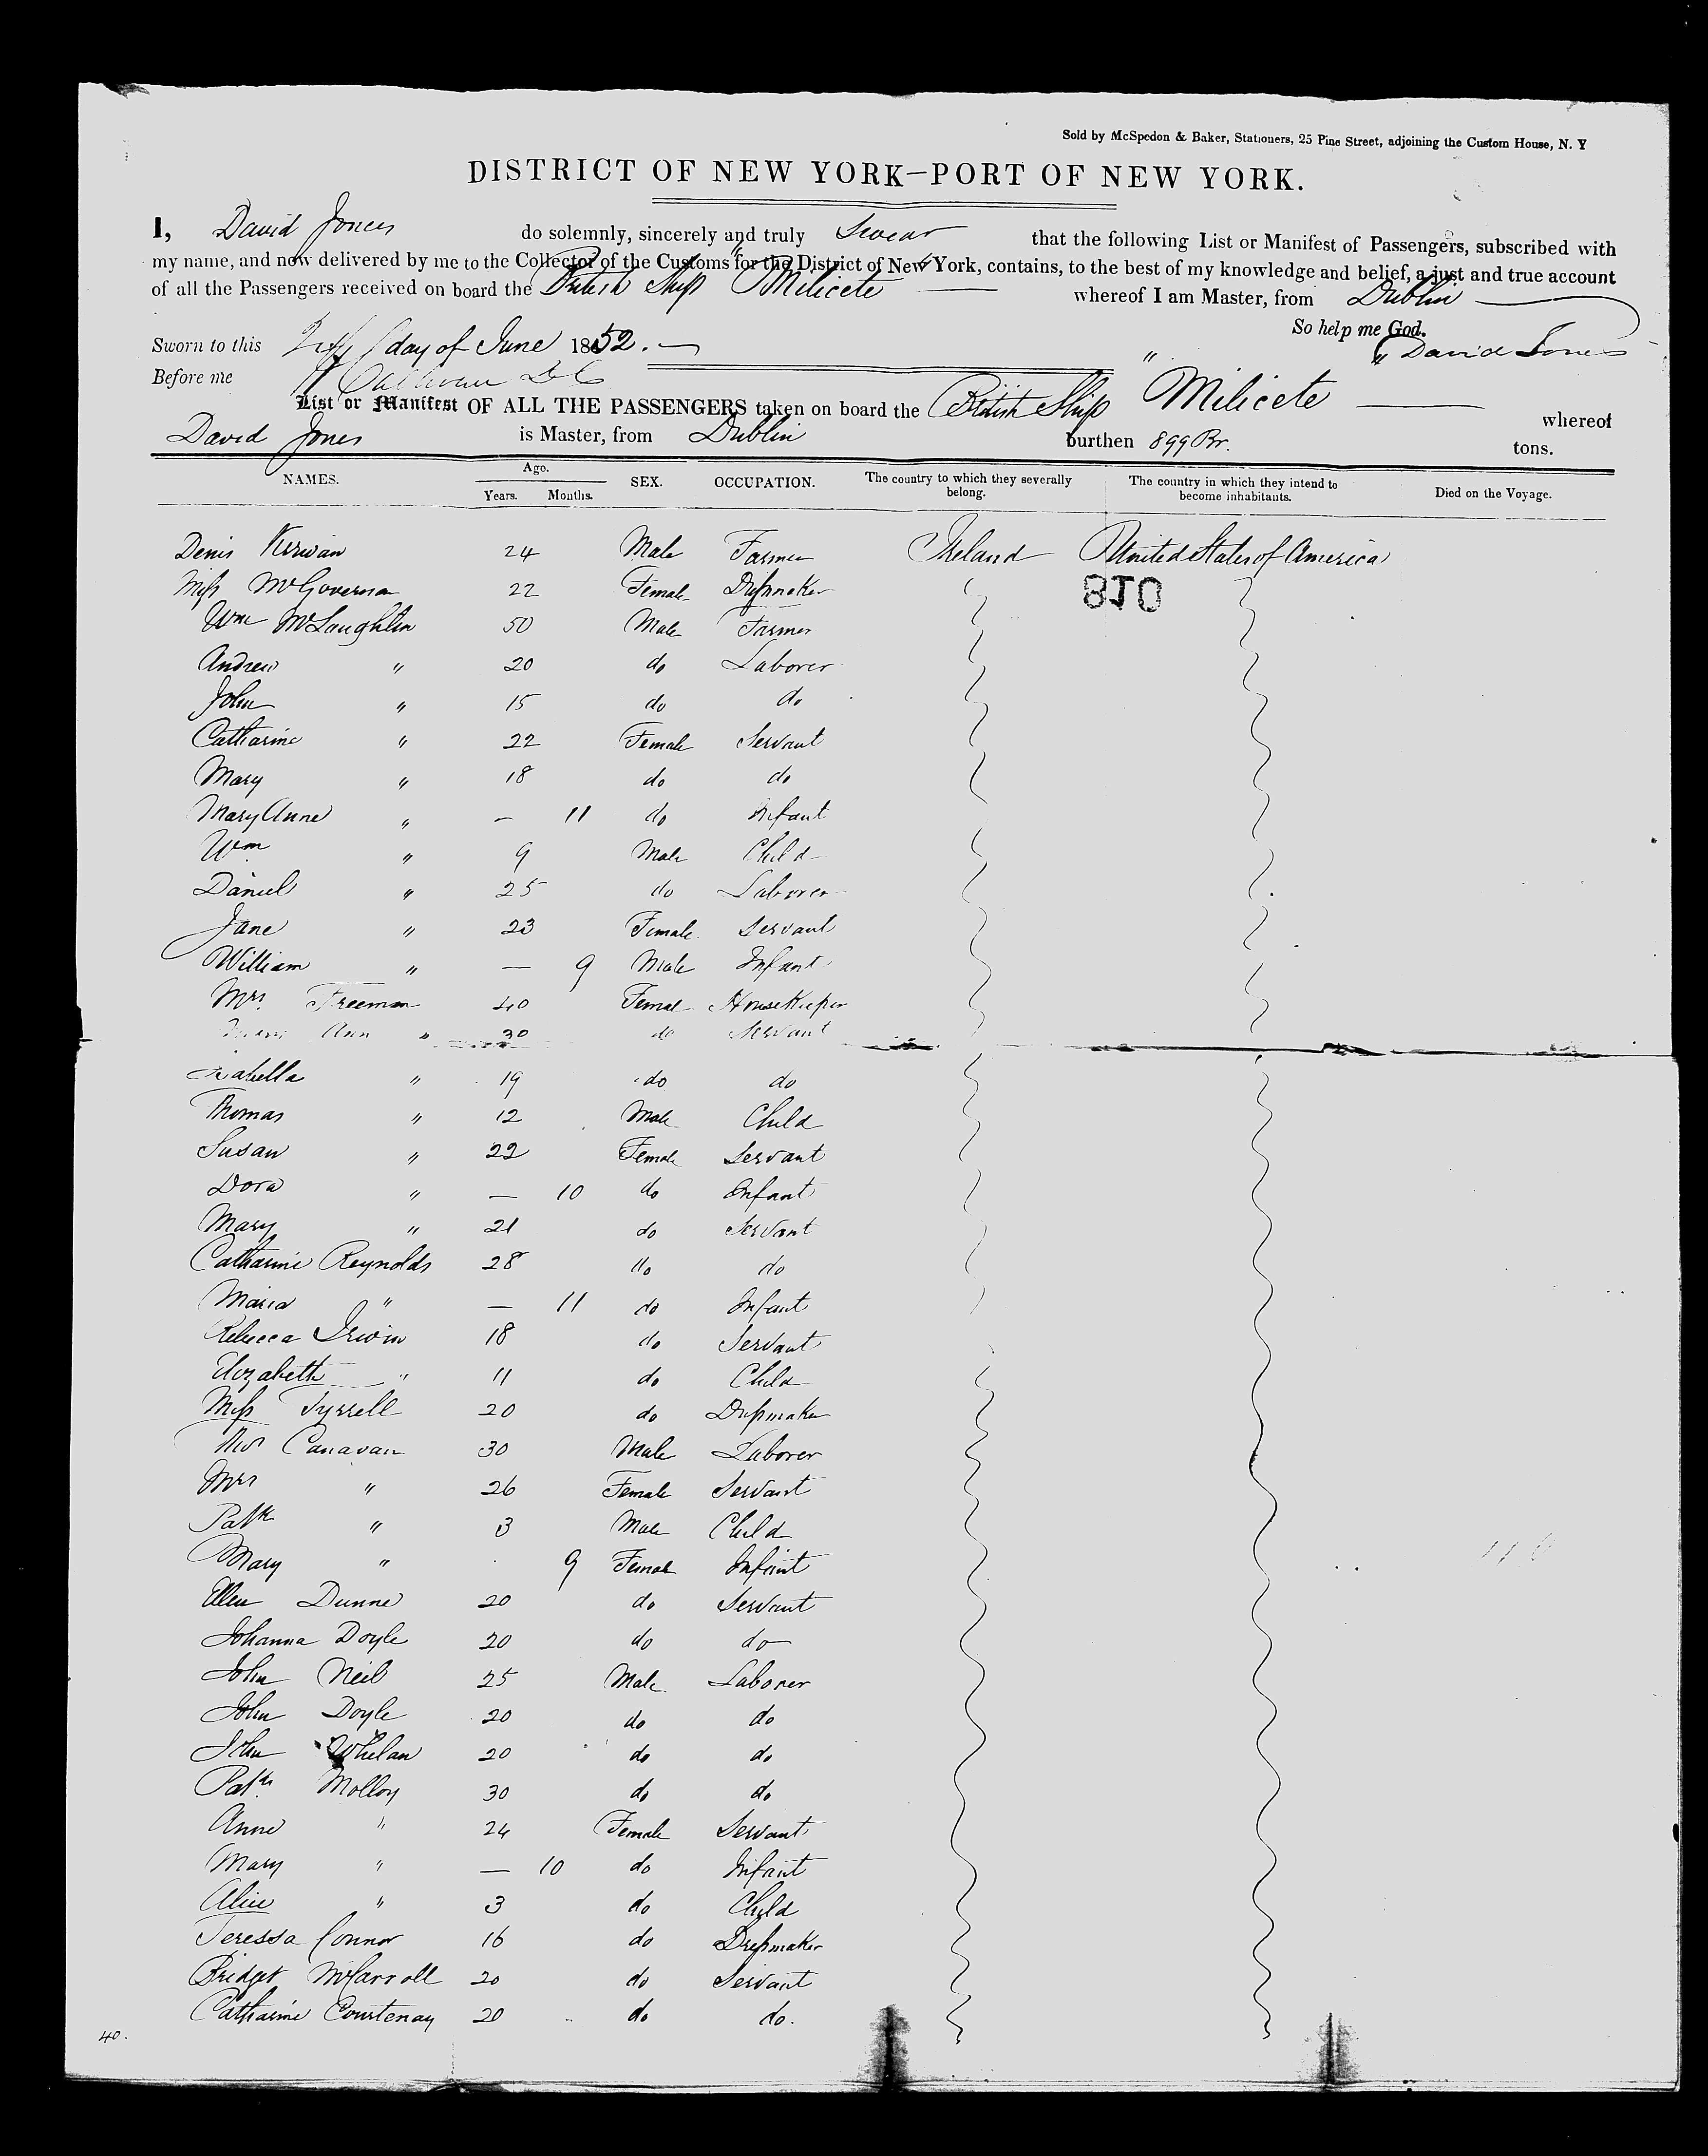 Sold by McSpedon & Baker, Stationers, 25 Pine Street, adjoining the Custom House, N. Y
DISTRICT OF NEW YORK—PORT OF NEW YORK.
I, David Jones do solemnly, sincerely and truly Swear that the following List or Manifest of Passengers, subscribed with
my name, and now delivered by me to the Collector of the Customs for the District of New York, contains, to the best of my knowledge and belief, a just and true account
of all the Passengers received on board the British Ship "Milicete" whereof I am Master, from Dublin
So help me God.
Sworn to this day of June 1852. David Jones
Before me
List or Manifest OF ALL THE PASSENGERS taken on board the British Ship "Milicete whereof
David Jones is Master, from Dublin burthen 899 Br. tons.
NAMES. Age. Years. Months. SEX. OCCUPATION. The country to which they severally belong. The country in which they intend to become inhabitants. Died on the Voyage.
Denis Kirwan 24 Male Farmer Ireland United States of America
Miss McGovern 22 Female Dressmaker 810
Wm McLaughlin 50 Male Farmer
Andrew " 20 do Laborer
John " 15 do do
Catharine " 22 Female Servant
Mary " 18 do do
Mary Anne " — 11 do Infant
Wm " 9 Male Child
Daniel " 25 do Laborer
Jane " 23 Female Servant
William " — 9 Male Infant
Mrs. Freeman 40 Female HouseKeeper
Ann " 30 do Servant
Isabella " 19 do do
Thomas " 12 Male Child
Susan " 22 Female Servant
Dora " — 10 do Infant
Mary " 21 do Servant
Catharine Reynolds 28 do do
Maria " — 11 do Infant
Rebecca Irwin 18 do Servant
Elizabeth " 11 do Child
Miss Tyrrell 20 do Dressmaker
Canavan 30 Male Laborer
Mrs " 26 Female Servant
Patk " 3 Male Child
Mary " 9 Female Infant
Ellen Dunne 20 do Servant
Johanna Doyle 20 do do
John Neil 25 Male Laborer
John Doyle 20 do do
John Whelan 20 do do
Patk Molloy 30 do do
Anne " 24 Female Servant
Mary " — 10 do Infant
Alice " 3 do Child
Teressa Connor 16 do Dressmaker
Bridget McCarroll 20 do Servant
Catharine Courtenay 20 do do.
40.